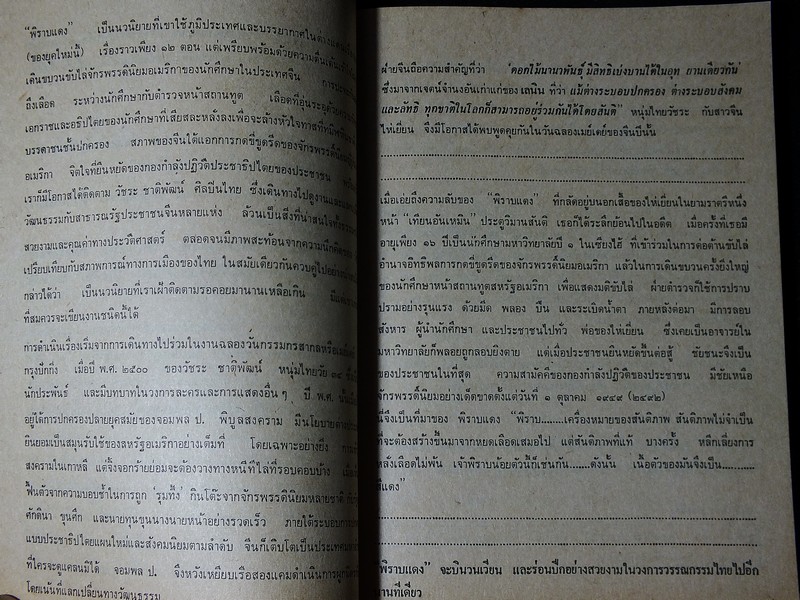 "พิราบแดง" เป็นนวนิยายที่เขาใช้ภูมิประเทศและบรรยากาศในต่างแดน
(ของยุคใหม่นี้) เรื่องราวเพียง ๑๒ ตอน แต่เพรียบพร้อมด้วยความตื่นเต้น
เดินขบวนขับไล่จักรพรรดินิยมอเมริกาของนักศึกษาในประเทศจีน
ถึงเลือด ระหว่างนักศึกษากับตำรวจหน้าสถานทูต เลือดที่อุ่นระอุด้วย
เอกราชและอธิปไตยของนักศึกษาที่เสียสละหลั่งลงเพื่อจะล้างหัวใจทาสที่
บรรดาชนชั้นปกครอง สภาพของจีนใต้แอกการกดขี่ขูดรีดของจักรพรรดินิยม
อเมริกา จิตใจที่ยืนหยัดของกองกำลังปฏิวัติประชาธิปไตยของประชาชน
เราก็มีโอกาสได้ติดตาม วัชระ ชาติพัฒน์ ศิลปินไทย ซึ่งเดินทางไปดูงานและ
วัฒนธรรมกับสาธารณรัฐประชาชนจีนหลายแห่ง ล้วนเป็นสิ่งที่น่าสนใจทั้ง
สวยงามและคุณค่าทางประวัติศาสตร์ ตลอดจนมีภาพสะท้อนจากความนึกคิด
เปรียบเทียบกับสภาพการณ์ทางการเมืองของไทย ในสมัยเดียวกันควบคู่ไปอย่าง
กล่าวได้ว่า เป็นนวนิยายที่เราเฝ้าติดตามรอคอยมานานเหลือเกิน
ที่สมควรจะเขียนงานชนิดนี้ได้
การดำเนินเรื่องเริ่มจากการเดินทางไปร่วมในงานฉลองวันกรรมกรสากล
กรุงปักกิ่ง เมื่อปี พ.ศ. ๒๕๐๐ ของวัชระ ชาติพัฒน์ หนุ่มไทยวัย ๓๔
นักประพันธ์ และมีบทบาทในวงการละครและการแสดงอื่นๆ ปี พ.ศ. นั้น
อยู่ใต้การปกครองปลายยุคสมัยของจอมพล ป. พิบูลสงคราม มีนโยบาย
ยินยอมเป็นสมุนรับใช้ของสหรัฐอเมริกาอย่างเต็มที่ โดยเฉพาะอย่างยิ่ง
สงครามในเกาหลี แต่จิ้งจอกร้ายย่อมจะต้องวางทางหนีทีไล่ที่รอบคอบบ้าง
ฟื้นตัวจากความบอบช้ำในการถูก 'รุมทึ้ง' กินโต๊ะจากจักรพรรดินิยมหลายชาติ
ศักดินา ขุนศึก และนายทุนขุนนางนายหน้าอย่างรวดเร็ว ภายใต้ระบอบ
แบบประชาธิปไตยแผนใหม่และสังคมนิยมตามลำดับ จีนก็เติบโตเป็นประเทศ
ที่ใครจะดูแคลนมิได้ จอมพล ป. จึงหวังเหยียบเรือสองแคมดำเนินการผูก
โดยเน้นที่แลกเปลี่ยนทางวัฒนธรรม
ฝ่ายจีนถือความสำคัญที่ว่า 'ดอกไม้นานาพันธุ์ มีสิทธิเบ่งบานได้ในอุทยานเดียวกัน'
ซึ่งมาจากเจตน์จำนงอันเก่าแก่ของ เลนิน ที่ว่า แม้ต่างระบอบปกครอง ต่างระบอบสังคม
และลัทธิ ทุกชาติในโลกก็สามารถอยู่ร่วมกันได้โดยสันติ" หนุ่มไทยวัชระ กับสาวจีน
ไห่เยี่ยน จึงมีโอกาสได้พบพูดคุยกันในวันฉลองเมย์เดย์ของจีนปีนั้น
เมื่อเอ่ยถึงความลับของ "พิราบแดง" ที่กลัดอยู่บนอกเสื้อของไห่เยี่ยนในยามราตรีหนึ่ง
หน้า "เทียนอันเหมิน" ประตูวิมานสันติ เธอก็ได้ระลึกย้อนไปในอดีต เมื่อครั้งที่เธอมี
อายุเพียง ๑๖ ปีเป็นนักศึกษามหาวิทยาลัยปี ๑ ในเซี่ยงไฮ้ ที่เข้าร่วมในการต่อต้านขับไล่
อำนาจอิทธิพลการกดขี่ขูดรีดของจักรพรรดิ์นิยมอเมริกา แล้วในการเดินขบวนครั้งยิ่งใหญ่
ของนักศึกษาหน้าสถานทูตสหรัฐอเมริกา เพื่อแสดงมติขับไล่ ฝ่ายตำรวจก็ใช้การปราบ
ปรามอย่างรุนแรง ด้วยมีด พลอง ปืน และระเบิดน้ำตา ภายหลังต่อมา มีการลอบ
สังหาร ผู้นำนักศึกษา และประชาชนไปทั่ว พ่อของไห่เยี่ยน ซึ่งเคยเป็นอาจารย์ใน
มหาวิทยาลัยก็พลอยถูกลอบยิงตาย แต่เมื่อประชาชนยืนหยัดขึ้นต่อสู้ ชัยชนะจึงเป็น
ของประชาชนในที่สุด ความสามัคคีของกองกำลังปฏิวัติของประชาชน มีชัยเหนือ
จักรพรรดิ์นิยมอย่างเด็ดขาดตั้งแต่วันที่ ๑ ตุลาคม ๑๙๔๙ (๒๔๙๒)
นี่จึงเป็นที่มาของ พิราบแดง "พิราบ........เครื่องหมายของสันติภาพ สันติภาพไม่จำเป็น
ที่จะต้องสร้างขึ้นมาจากหยดเลือดเสมอไป แต่สันติภาพที่แท้ บางครั้ง หลีกเลี่ยงการ
หลั่งเลือดไม่พ้น เจ้าพิราบน้อยตัวนี้ก็เช่นกัน......ดังนั้น เนื้อตัวของมันจึงเป็น..........
สีแดง"
"พิราบแดง" จะบินวนเวียน และร่อนปีกอย่างสวยงามในวงการวรรณกรรมไทยไปอีก
นานทีเดียว